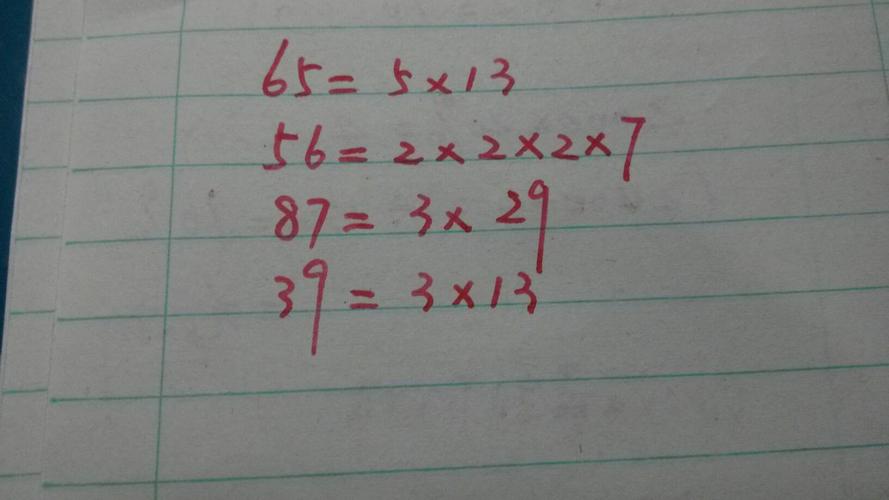 65 = 5 × 13
56 = 2 × 2 × 2 × 7
87 = 3 × 29
39 = 3 × 13